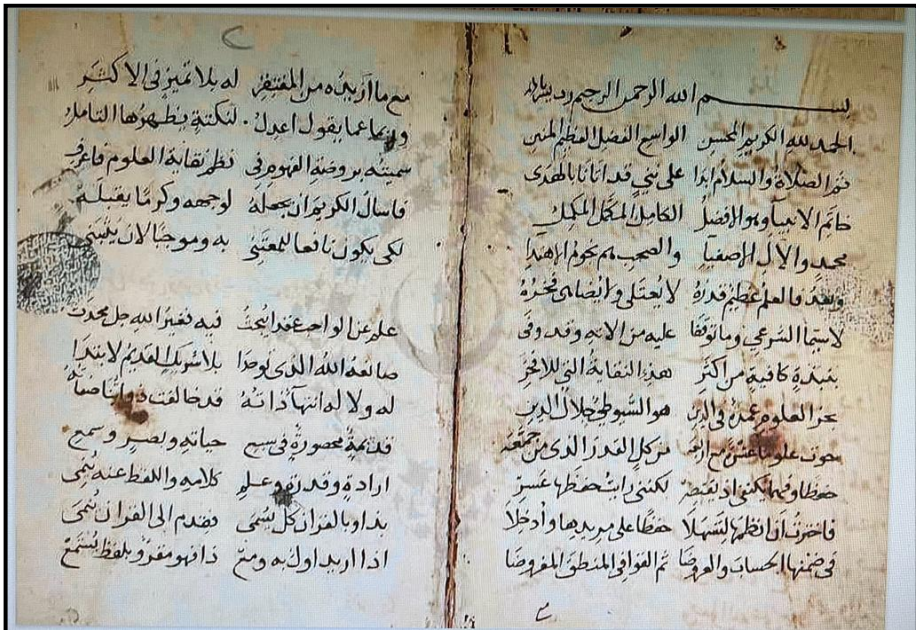 بسم الله الرحمن الرحيم رب يسر
الحمد لله الكريم المحسن الواسع الفضل العظيم المنن
ثم الصلاة والسلام ابدا على نبي قد اتانا بالهدى
خاتم الانبيا وهو الافضل الكامل المكمل المكمل
محمد والال الاصفيا والصحب هم نجوم الاهتدا
وبعد فالعلم عظيم قدره لا يعتلى ولا يضاهى فخره
لا سيما الشرعي وما توقفا عليه من الاته وقد وفى
بنبذة كافية من اكثر هذه النقاية التي للابحر
بحر العلوم عمدة في الدين هو السيوطي جلال الدين
حوت علوما عشرة مع اربعه من كل القدر الذى من جمعه
حفظا وفهما يكتفى اذ يقتصر لكننى رايت حفظها عسر
فاخترت ان انظمها لتسهلا حفظا على مريدها وادخلا
فى ضمنها الحساب والعروضا ثم القوافي المنطق المفروضا
مع ما ازيده من المفتقر له بلا تميز فى الاكثر
وربما عما يقول اعدل لنكتة يظهرها التامل
سميته بروضة الفهوم فى نظم نقاية العلوم فاعرف
فاسال الكريم ان يجعله لوجهه وكرما يقبله
لكى يكون نافعا للمعتنى به وموجبا لان
علم عن الواجب عقدا يبحث فيه نقر الله جل محدث
صانعه الله الذى توحدا بلا شريك القديم لا ابتدا
له ولا له انتها ذاته قد خالفت ذواتنا صفاته
قديمة محصورة فى سبع حياته وبصر وسمع
ارادة وقدرة وعلم كلامه واللفظ عنه
بذا وبالقران كل يسمى فقدم الى القران
اذا اريد اول به ومع ذا فهو مقرو بلفظ يستمع